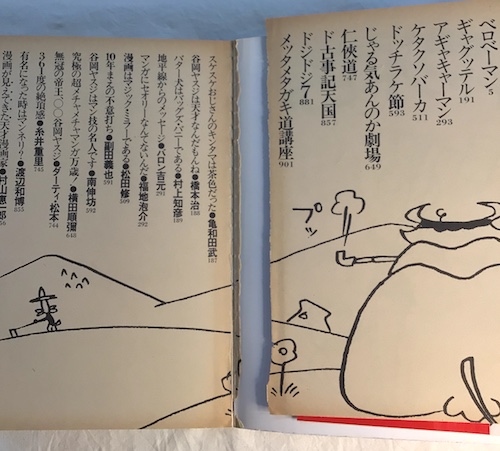 ペロペーマン 5
ギャグッテル 191
アギャキャーマン 293
ケタクソバーカ 511
ドッチラケ節 593
じゃる気あんのか劇場 649
仁俠道 747
ド古事記天国 857
ドジドジ7 881
メッタメタガキ道講座 901
プッ
スケスケおじさんのキンタマは茶色だった●亀和田武 187
谷岡ヤスジは天才なんだもんね●橋本治 188
バター犬はバックス・バニーである●村上知彦 189
地平線からのメッセージ●バロン吉元 291
マンガにセオリーなんてないんだ●福地泡介 292
漫画はマジックミラーである●松田修 509
10年まえの不意打ち●副田義也 591
谷岡ヤスジはマン技の名人です●南伸坊 592
究極の超メチャメチャマンガ万歳！●横田順彌 648
無冠の帝王、〇〇谷岡ヤスジ●ダーティ・松本 744
36度の絶頂感●糸井重里 745
有名になった時はマンネリッ●渡辺和博 855
漫画が見えてきた天才漫画家●村山憲一郎